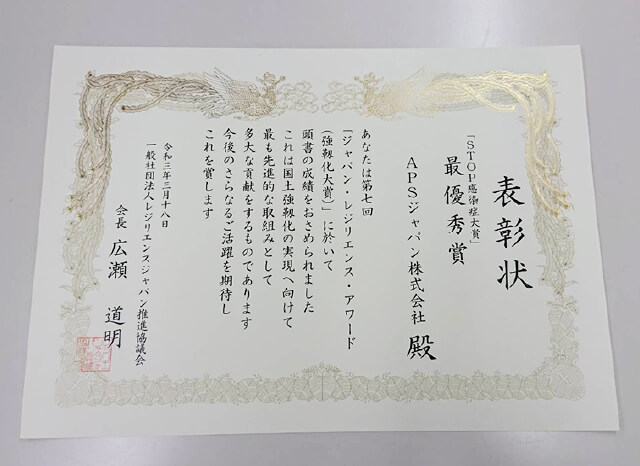 表彰状
「STOP感染症大賞」
最優秀賞
APSジャパン株式会社 殿
あなたは第七回
「ジャパン・レジリエンス・アワード
(強靱化大賞)」に於いて
頭書の成績をおさめられました
これは国土強靱化の実現へ向けて
最も先進的な取組みとして
多大な貢献をするものであります
今後のさらなるご活躍を期待し
これを賞します
令和三年三月十八日
一般社団法人レジリエンスジャパン推進協議会
会長 広瀬 道明